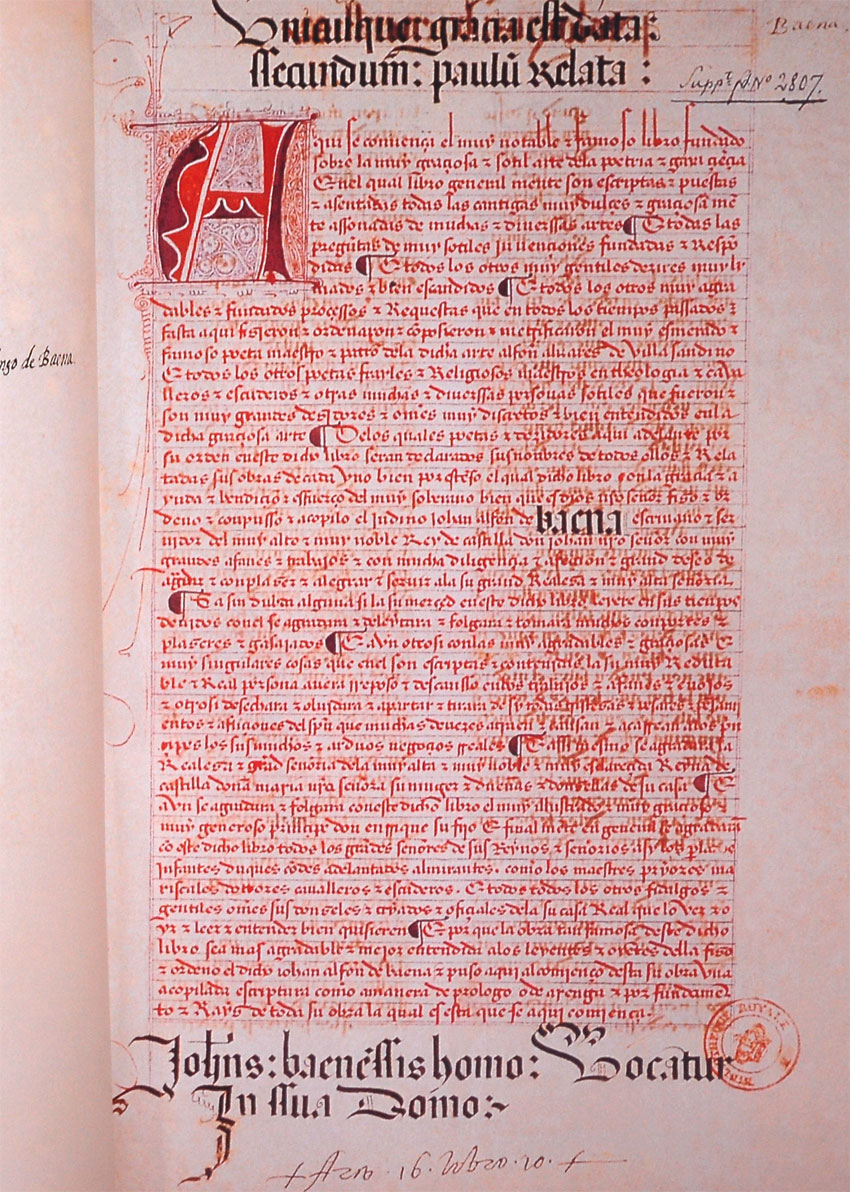 Unicuique gracia est data:
ssecundum: paulũ Relata:
Baena.
Suppᵗ fr. Nº 2807.
Aqui se comiença el muy notable ⁊ famoso libro fundado
sobre la muy graçiosa ⁊ sotil arte dela poetria ⁊ gaya çiençia
En el qual libro general mente son escriptas ⁊ puestas
⁊ asentadas todas las cantigas muy dulçes ⁊ graçiosa mẽ
te assonadas de muchas ⁊ diverssas artes ¶ E todas las
preguntas de muy sotiles jnvenciones fundadas ⁊ Respõ
didas ¶ E todos los otros muy gentiles dezires muy ly
mados ⁊ bien escandidos ¶ E todos los otros muy agra
dables ⁊ fundados processos ⁊ Requestas que en todos los tienpos passados ⁊
fasta aqui fisieron ⁊ ordenaron ⁊ cõposieron ⁊ metrificaron el muy esmerado ⁊
famoso poeta maestro ⁊ patrõ dela dicha arte alfon aluares de Villa sandino
E todos los otros poetas frayles ⁊ Religiosos maestros en theologia ⁊ caua
lleros ⁊ escuderos ⁊ otras muchas ⁊ diverssas personas sotiles que fueron ⁊
son muy grandes desidores ⁊ omes muy discretos ⁊ bien entendidos en la
dicha graçiosa arte ¶ Delos quales poetas ⁊ desidores aqui adelante por
su orden eneste dicho libro seran declarados sus nonbres de todos ellos ⁊ Rela
tadas sus obras de cada vno bien por estẽso el qual dicho libro con la graçia ⁊ a
yuda ⁊ bendiçiõ ⁊ esfuerço del muy soberano bien que es dios nr̃o señor fiso ⁊ or
deno ⁊ conpusso ⁊ acopilo el judino johan alfon de baena escriuano ⁊ ser
uidor del muy alto ⁊ muy noble Rey de castilla don johan nr̃o señor con muy
grandes afanes ⁊ trabajos ⁊ con mucha diligençia ⁊ afecçion ⁊ grand deseo de
agradar ⁊ conplaser ⁊ alegrar ⁊ seruir ala su grand Realesa ⁊ muy alta señoria.
¶ Ca sin dubda alguna si la su merçed eneste dicho libro leyere en sus tienpos
deuidos con el se agradara ⁊ deleytara ⁊ folgara ⁊ tomara muchos conportes ⁊
plaseres ⁊ gasajados ¶ E avn otrosi con las muy agradables ⁊ graçiosas E
muy singulares cosas que enel son escriptas ⁊ contenidas la su muy Redutta
ble ⁊ Real persona auera rreposo ⁊ descansso enlos trabajos ⁊ afanes ⁊ enojos
⁊ otrosi desechara ⁊ oluidara ⁊ apartar ⁊ tirara de sy todas tristesas ⁊ pesares ⁊ pensami
entos ⁊ afliciones del spũ que muchas de veses atraen ⁊ causan ⁊ acarrean alos prin
çipes los sus muchos ⁊ arduos negoçios rreales ¶ E assi mesmo se agradara la
Realesa ⁊ grãd señoria dela muy alta ⁊ muy noble ⁊ muy esclareçida Reyna de
castilla doña maria nr̃a señora su muger ⁊ dueñas ⁊ donsellas de su casa ¶ E
avn se agradara ⁊ folgara con este dicho libro el muy illustrado ⁊ muy graçioso ⁊
muy generoso prinçipe don enrrique su fijo E final mẽte en general se agradaran
cõ este dicho libro todos los grãdes señores de sus Reynos ⁊ señorios asy los perlados
jnfantes duques cõdes adelantados almirantes. como los maestres priores ma
riscales dottores caualleros ⁊ escuderos. E todos todos los otros fidalgos ⁊
gentiles omes sus donseles ⁊ criados ⁊ ofiçiales dela su casa Real que lo ver ⁊ o
yr ⁊ leer ⁊ entender bien quisieren ¶ E por que la obra tan famosa deste dicho
libro sea mas agradable ⁊ mejor entendida alos leyentes ⁊ oyentes della fiso
⁊ ordeno el dicho johan alfon de baena ⁊ puso aqui al comienço desta su obra vna
acopilada escriptura como amanera de prologo o de arenga ⁊ por fundamen
to ⁊ Rays de toda su obra la qual es esta que se aqui comiença.
Johñs: baenẽssis homo: Vocatur
In ssua Domo:~
nso de Baena